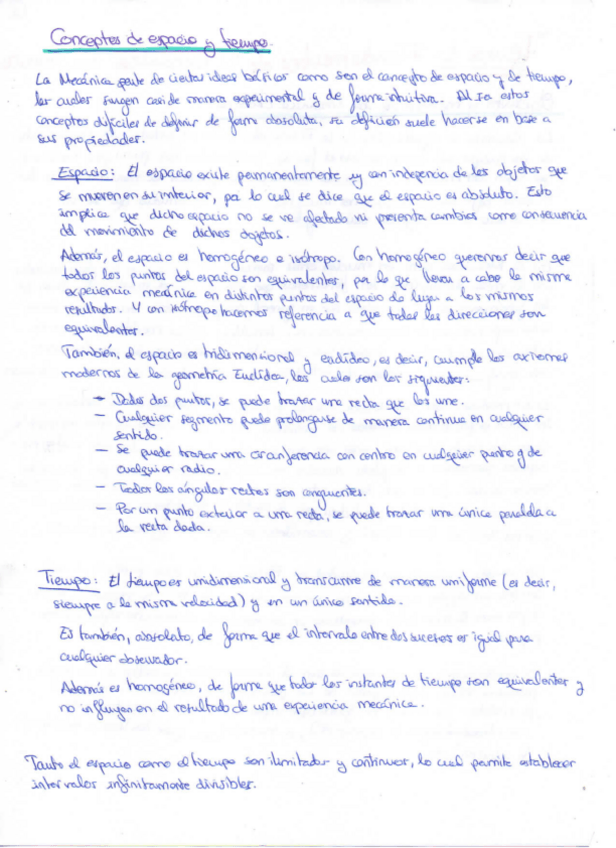 Conceptos de espacio y tiempo.
La Mecánica parte de ciertas ideas básicas como son el concepto de espacio y de tiempo,
las cuales surgen casi de manera experimental y de forma intuitiva. Al ser estos
conceptos difíciles de definir de forma absoluta, su definición suele hacerse en base a
sus propiedades.
Espacio: El espacio existe permanentemente y con indepencia de los objetos que
se mueven en su interior, por lo cual se dice que el espacio es absoluto. Esto
implica que dicho espacio no se ve afectado ni presenta cambios como consecuencia
del movimiento de dichos objetos.
Además, el espacio es homogéneo e isótropo. Con homogéneo queremos decir que
todos los puntos del espacio son equivalentes, por lo que llevar a cabo la misma
experiencia mecánica en distintos puntos del espacio da lugar a los mismos
resultados. Y con isótropo hacemos referencia a que todas las direcciones son
equivalentes.
También, el espacio es tridimensional y euclídeo, es decir, cumple los axiomas
modernos de la geometría Euclídea, los cuales son los siguientes:
- Dados dos puntos, se puede trazar una recta que los une.
- Cualquier segmento puede prolongarse de manera continua en cualquier
sentido.
- Se puede trazar una circunferencia con centro en cualquier punto y de
cualquier radio.
- Todos los ángulos rectos son congruentes.
- Por un punto exterior a una recta, se puede trazar una única paralela a
la recta dada.
Tiempo: El tiempo es unidimensional y transcurre de manera uniforme (es decir,
siempre a la misma velocidad) y en un único sentido.
Es también, absoluto, de forma que el intervalo entre dos sucesos es igual para
cualquier observador.
Además es homogéneo, de forma que todos los instantes de tiempo son equivalentes y
no influyen en el resultado de una experiencia mecánica.
Tanto el espacio como el tiempo son ilimitados y continuos, lo cual permite establecer
intervalos infinitamente divisibles.